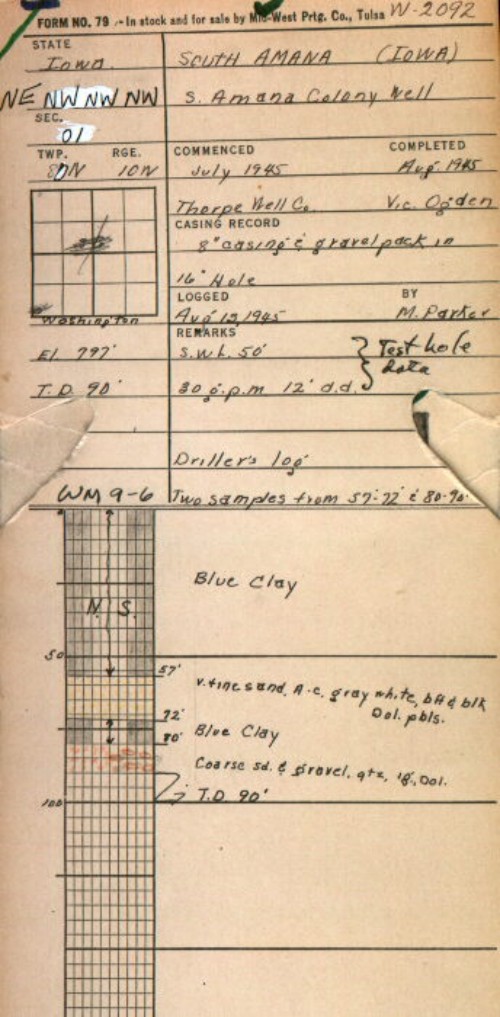 FORM NO. 79 - In stock and for sale by Mid-West Prtg. Co., Tulsa W-2092
STATE
Iowa
SOUTH AMANA (IOWA)
NE NW NW NW
S. Amana Colony Well
SEC.
01
TWP. RGE.
80N 10W
COMMENCED COMPLETED
July 1945 Aug 1945
Thorpe Well Co. Vic. Ogden
CASING RECORD
8" casing & gravel pack in
16" Hole
LOGGED BY
Aug 13, 1945 M. Parker
Washington
REMARKS
El. 797'
S.W.L. 50'
Test hole
data
T.D. 90'
30 g.p.m 12' d.d.
Driller's log
WM 9-6
Two samples from 57-72 & 80-90
Blue Clay
N. S.
50
57'
v. fine sand, A-c, gray white, bff & blk
Dol. pbls.
72'
80'
Blue Clay
Coarse sd. & gravel, qtz, ig., Dol.
100
T.D. 90'